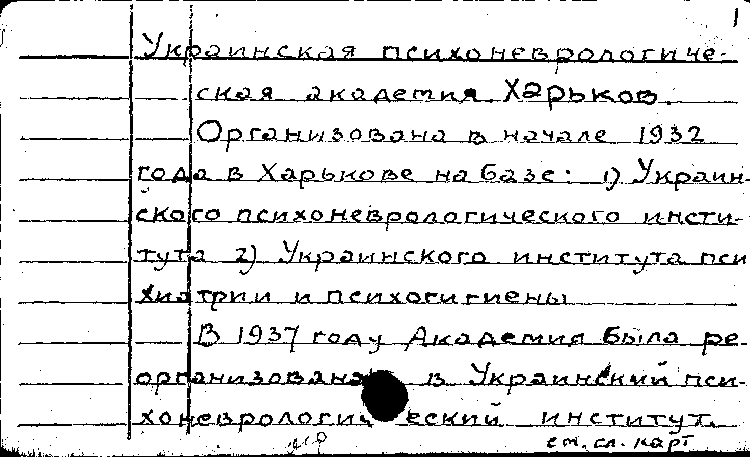 1
Украинская психоневрологиче-
ская академия Харьков.
Организована в начале 1932
года в Харькове на базе: 1) Украин-
ского психоневрологического инсти-
тута 2) Украинского института пси
хиатрии и психогигиены
В 1937 году Академия была ре
организована в Украинский пси-
хоневрологический институт.
см. сл. карт